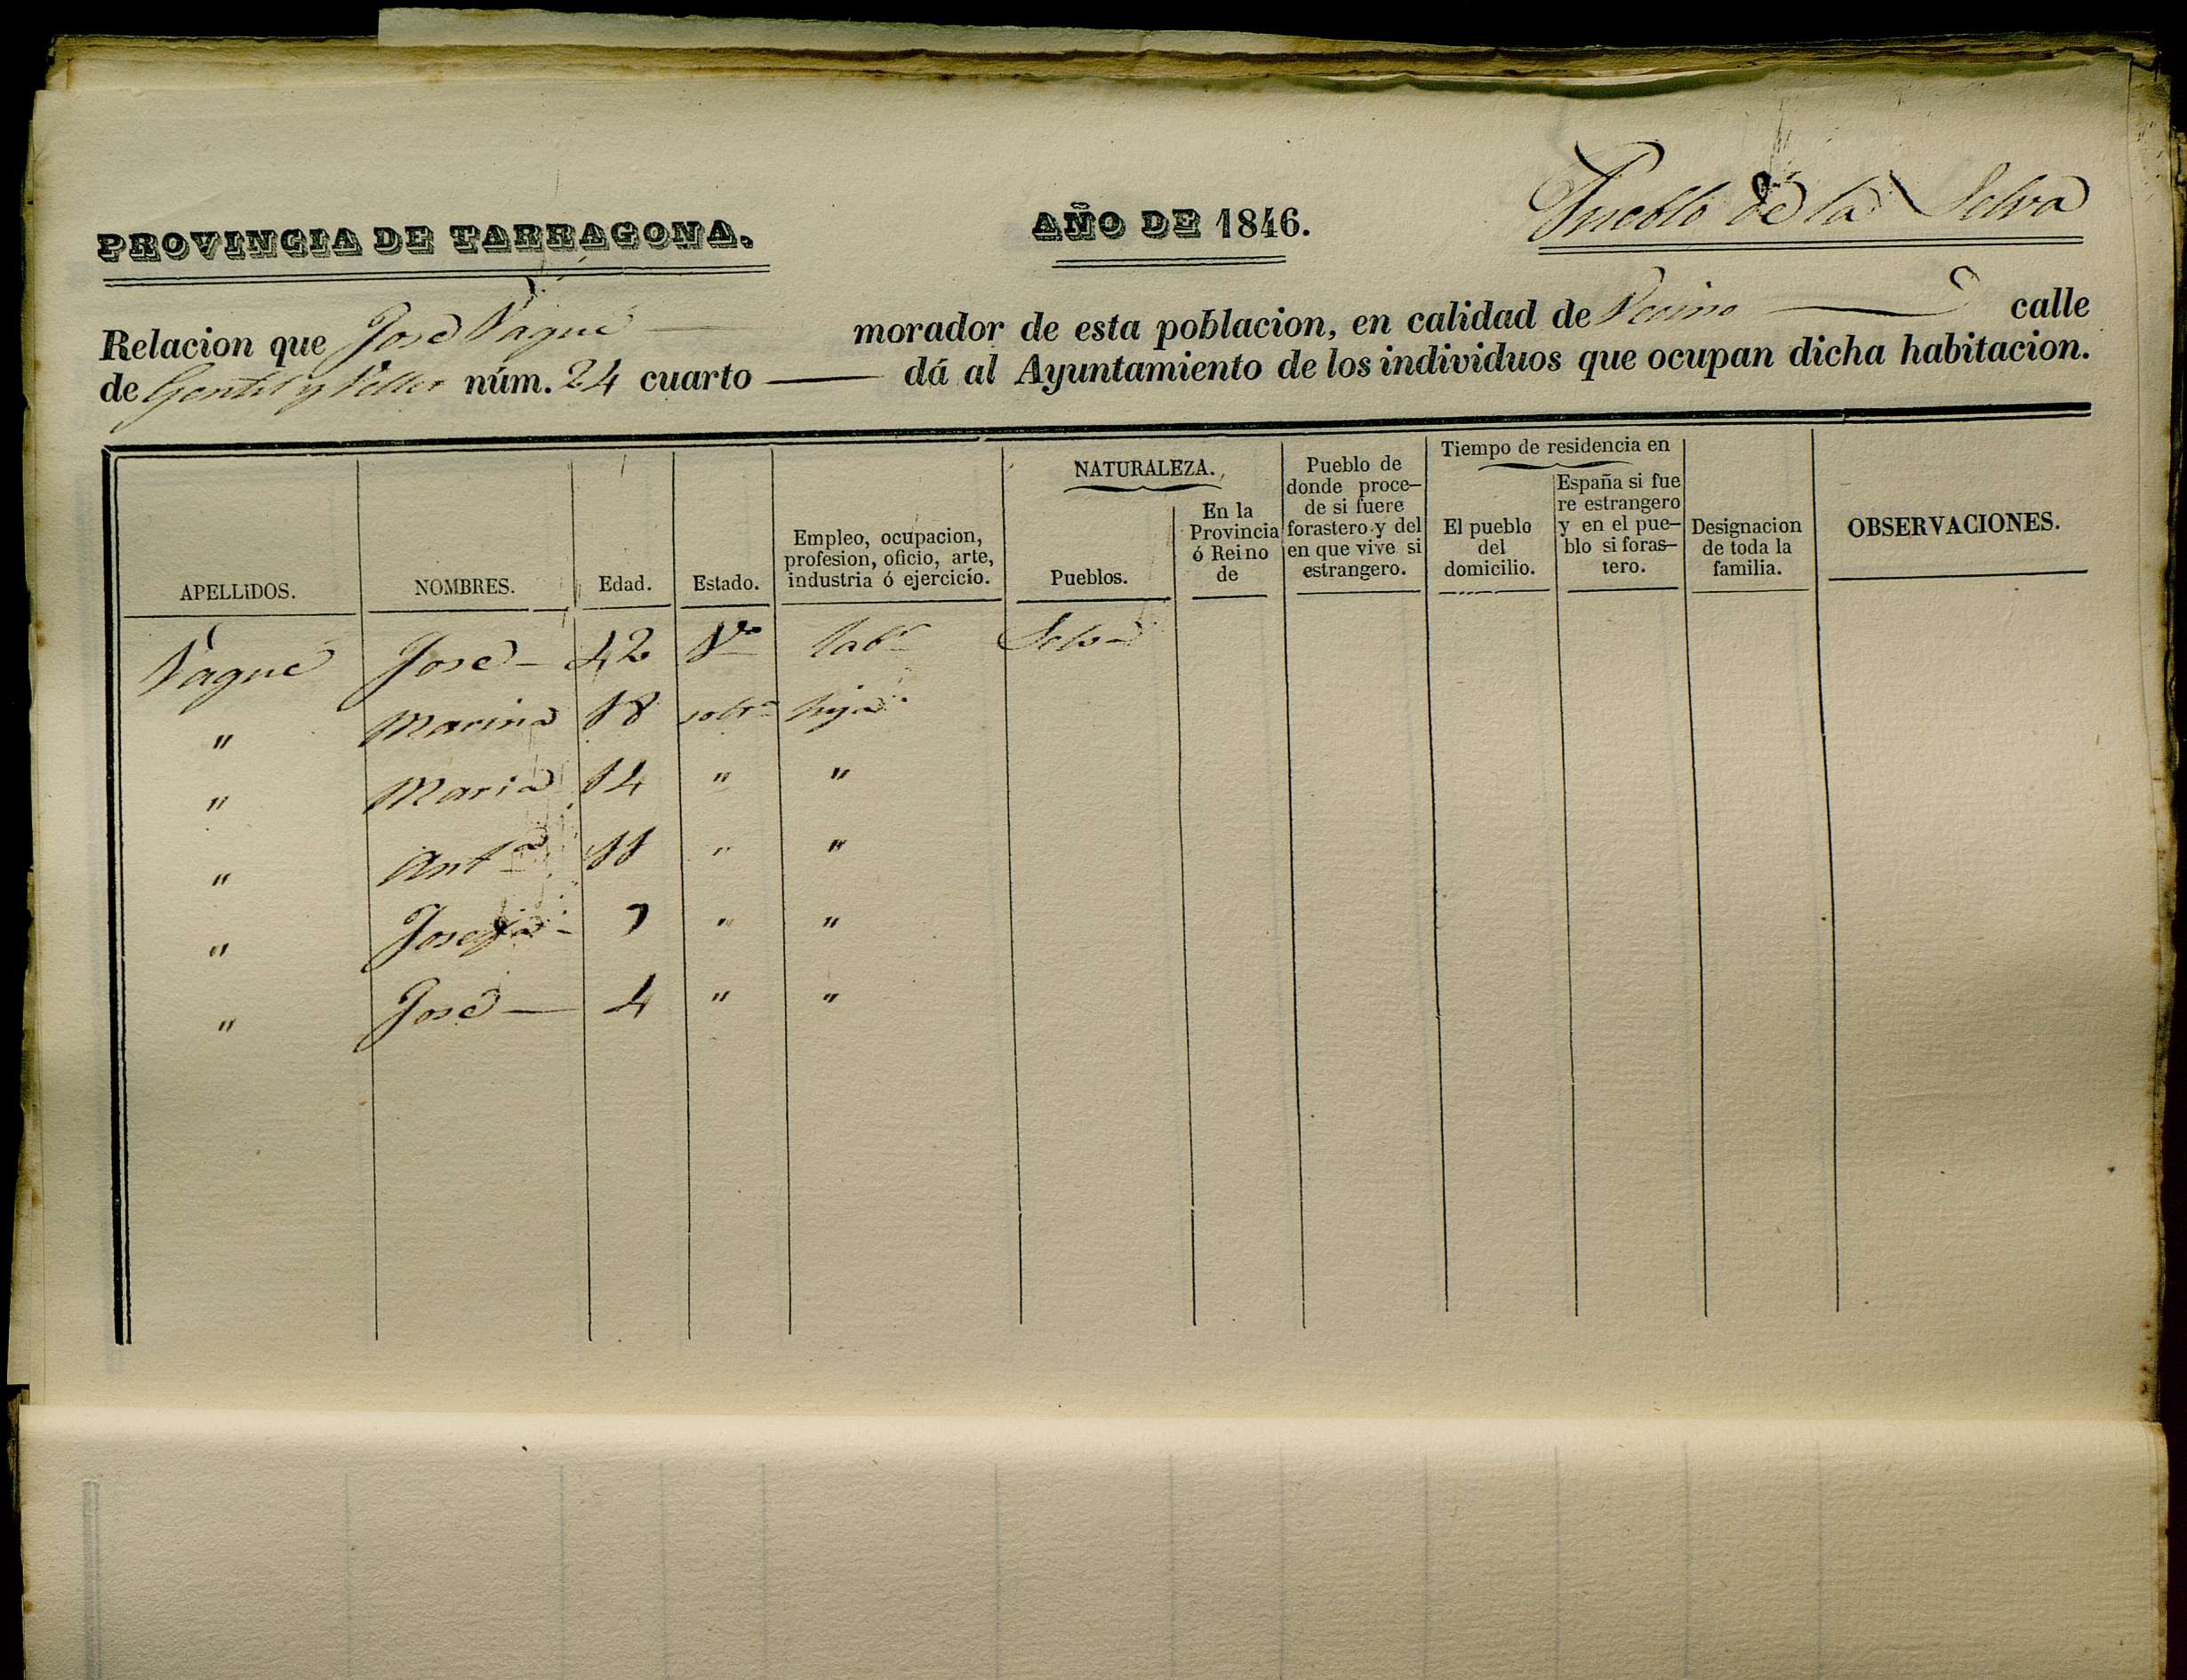 PROVINCIA DE TARRAGONA. AÑO DE 1846. Pueblo de la Selva
Relacion que José Vagué morador de esta poblacion, en calidad de Vecino calle
de Gentil y Veller núm. 24 cuarto — dá al Ayuntamiento de los individuos que ocupan dicha habitacion.
APELLIDOS. NOMBRES. Edad. Estado. Empleo, ocupacion, profesion, oficio, arte, industria ó ejercicio. NATURALEZA. Pueblos. En la Provincia ó Reino de Pueblo de donde proce- de si fuere forastero y del en que vive si estrangero. Tiempo de residencia en El pueblo del domicilio. España si fue re estrangero y en el pue- blo si foras- tero. Designacion de toda la familia. OBSERVACIONES.
Vagué José — 42 Vdo labr Selva
" Marina 18 solta hija
" Maria 14 " "
" Anta 11 " "
" Josefa - 7 " "
" José — 4 " "